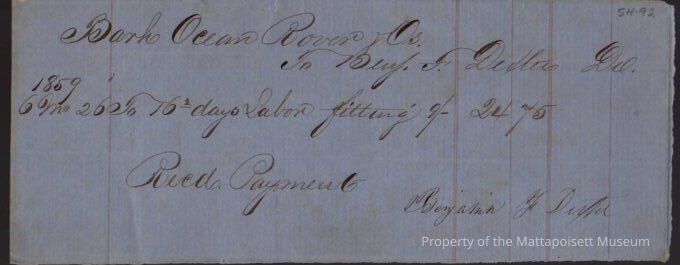 SH-92
Bark Ocean Rover & Os.
To Benj. F. Dexter Dr.
1859
6 mo 26 To 16½ days Labor fitting 9/- 24 75
Recd. Payment
Benjamin F Dexter
Property of the Mattapoisett Museum